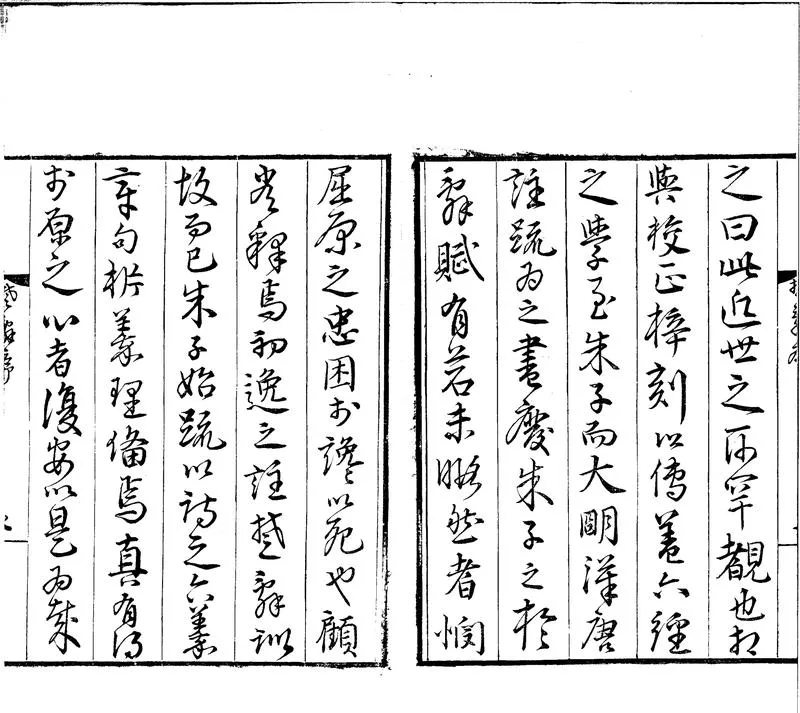 之曰此近世之所罕覩也相
與校正梓刻以傳蓋六經
之學至朱子而大明漢唐
註疏為之盡廢朱子之於
辭賦有若未暇然者憫
屈原之忠困於讒以死也顧
釋焉初逸之註楚辭訓
故而已朱子始疏以詩之六義
章句析義理備焉真有得
於原之心者復安以是為哉